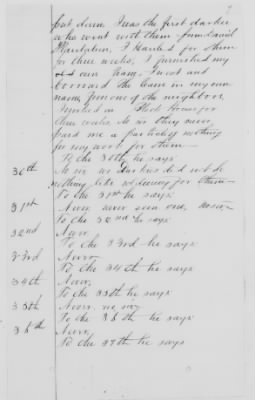 7
put down I was the first darkie
who went with them from daniel
I Hauled for them
for three weeks, I furnished my
own team, I went and
borrowed the team in my own
name, from one of the neighbors
for
three weeks. No sir they never
paid me a particle nothing
for my work for them—
To the 30th he says
30th No sir we darkies did not do
nothing like whining for them—
To the 31st he says
31st Never, never seen one,
To the 32nd he says
32nd Never
To the 33rd he says
33rd Never
To the 34th he says
34th Never,
To the 35th he says
35th Never no sir
To the 36th he says
36th Never,
To the 37th he says